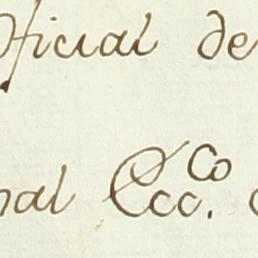 Oficial de
nal Ecc.co